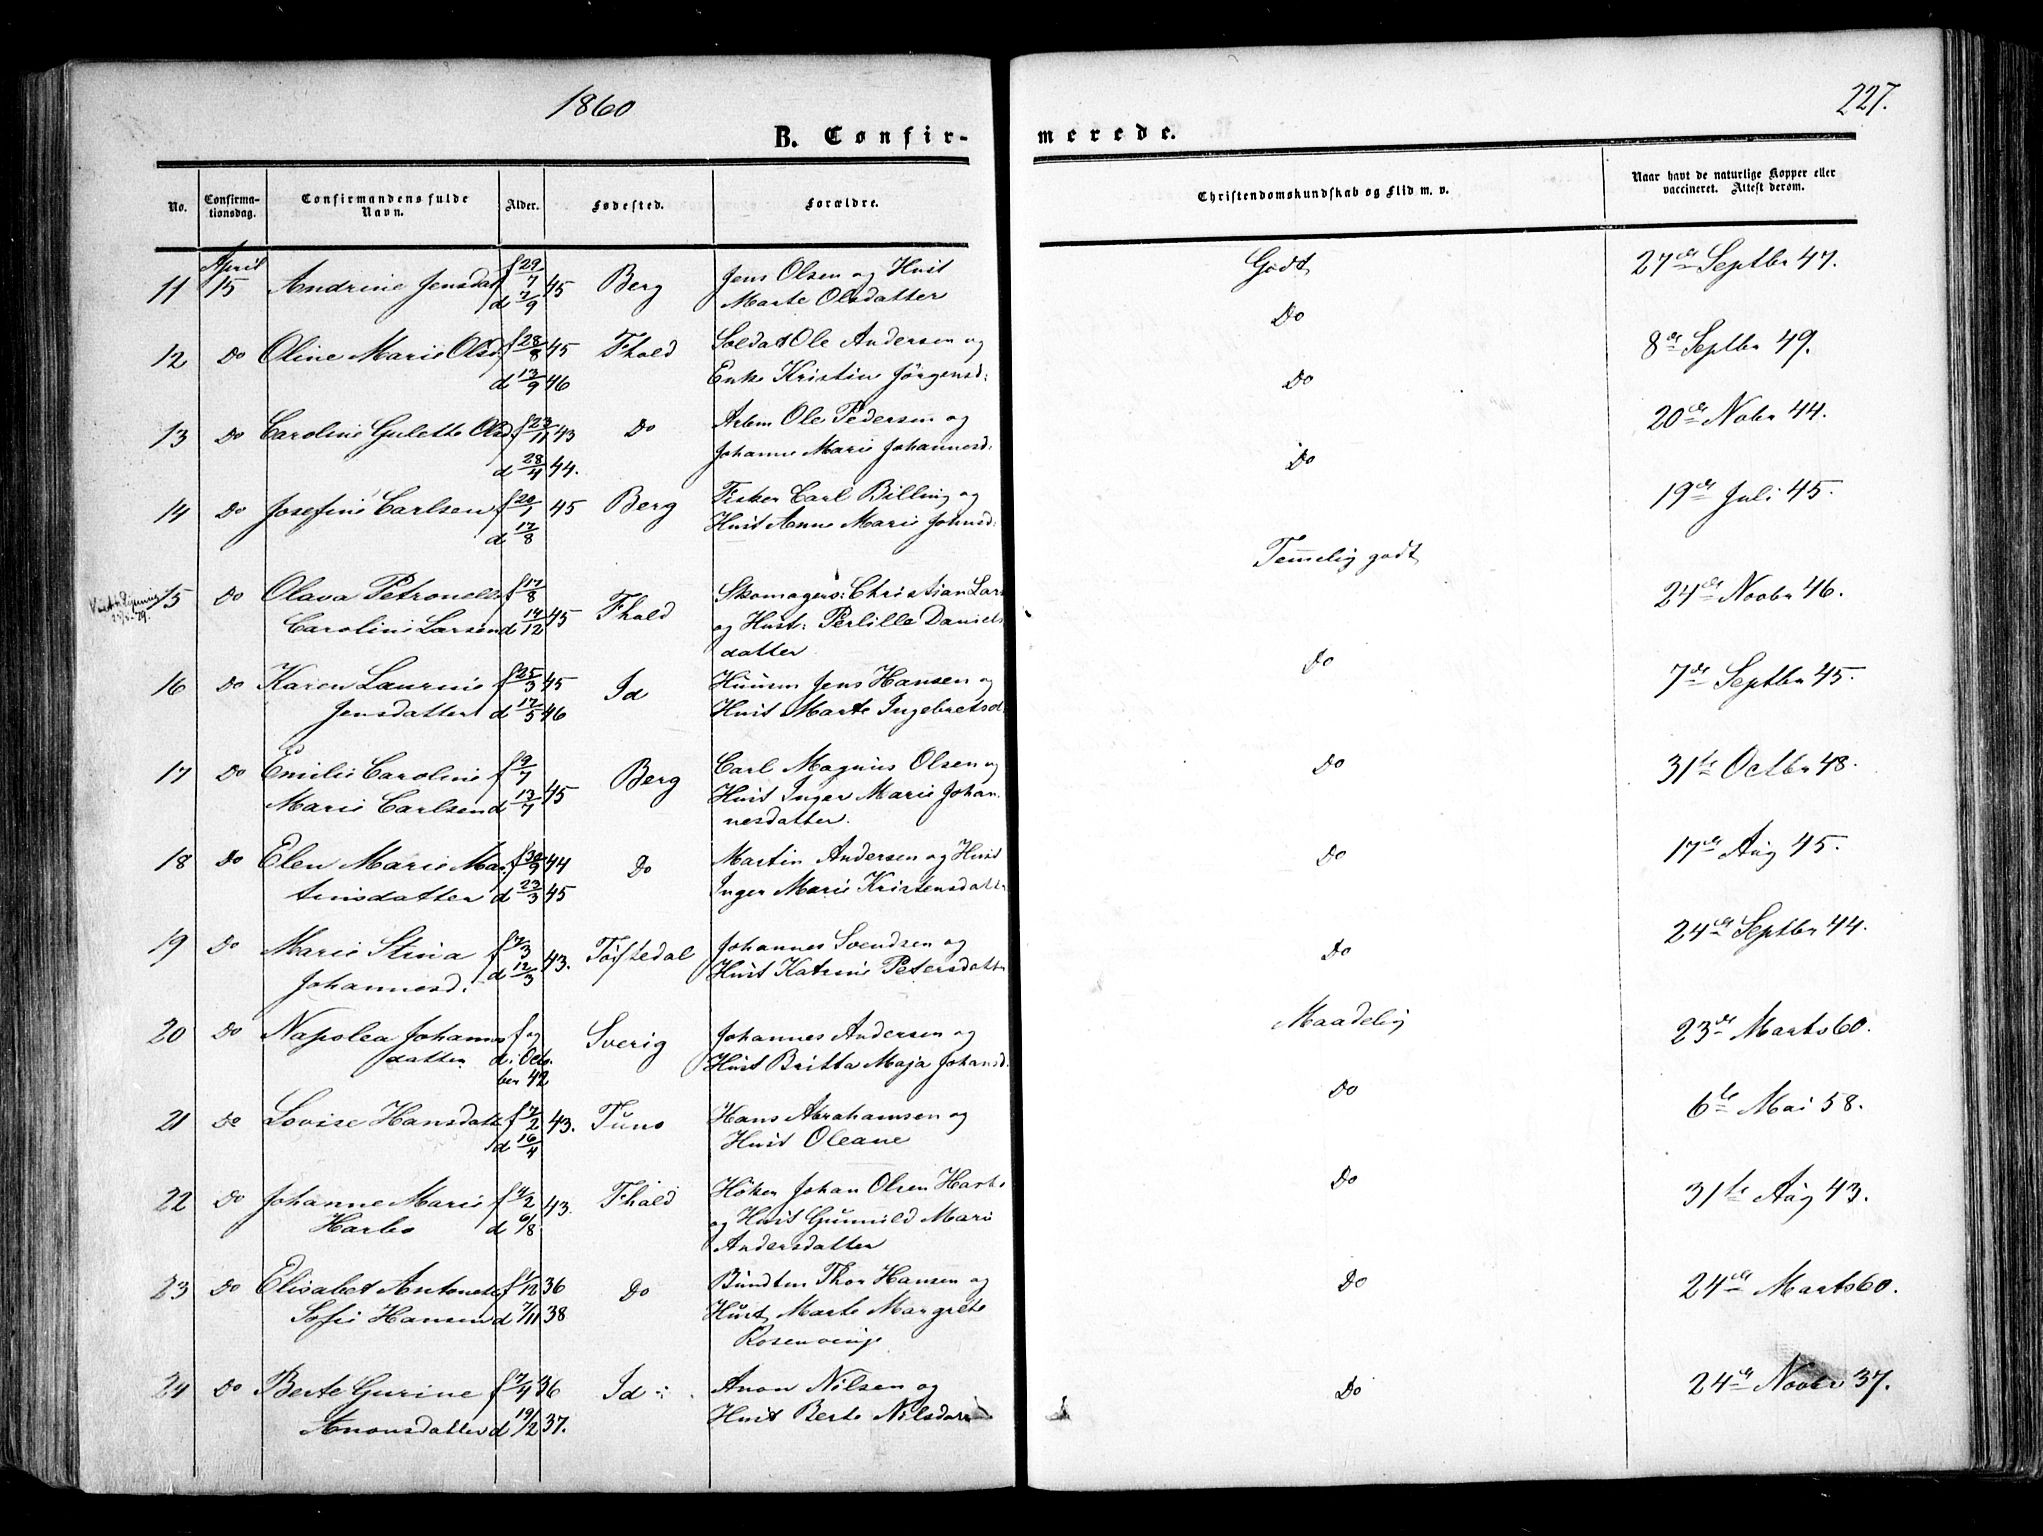 1860
227.
B. Confir-
merede.
No.
Confirma-
tionsdag.
Confirmandens fulde
Navn.
Alder.
Fødested.
Forældre.
Christendomskundskab og Flid m. v.
Naar havt de naturlige Kopper eller
vaccineret. Attest derom.
April
11 15 Andrine Jensdat f 29/7 d 7/9 45 Berg Jens Olsen og Hust
Marte Olsdatter
Godt 27de Septbr 47.
12 Do Oline Marie Olsd. f 28/8 45 Fhald Soldat Ole Andersen og
d 13/9 46 Enke Kristin Jørgensd:
Do 8de Septbr 49.
13 Do Caroline Gulette Olsd. f 23/11 43 Do Arbm Ole Pedersen og
d 28/4 44. Johanne Marie Johannesd:
Do 20de Nobr 44.
14 Do Josefine Carlsen f 20/1 45 Berg Fisker Carl Billing og
d 17/8 Hust Anne Marie Johnsd:
Do 19de Juli 45.
15 Do Olava Petronelle f 17/8 Skomagers: Christian Lars
Caroline Larsen d 14/12 45 Fhald og Hust: Perlille Daniels
datter
Temmelig godt 24de Novbr 46.
16 Do Karen Laurine f 25/3 45 Id Huusm Jens Hansen og
Jensdatter d 17/5 46 Hust Marte Ingebretsd:
Do 7de Septbr 45.
17 Do Emilie Caroline f 9/7 Berg Carl Magnus Olsen og
Marie Carlsen d 13/7 45 Hust Inger Marie Johan
nesdatter.
Do 31te Octbr 48.
18 Do Elen Marie Mar f 30/9 44 Do Martin Andersen og Hust
tinsdatter d 23/3 45 Inger Marie Kristensdatt
Do 17de Aug 45.
19 Do Marie Stina f 7/3 Tøftedal Johannes Svendsen og
Johannesd. d 12/3 43. Hust Katrine Petersdatt
Do 24de Septbr 44.
20 Do Napolea Johannes f og Sverig Johannes Andersen og
datter d: Octo Hust Britta Maja Johansd.
ber 42
Maadelig 23de Marts 60.
21 Do Lovise Hansdatt f 7/2 43. Tune Hans Abrahamsen og
d 16/4 Hust Oleane
Do 6te Mai 58.
22 Do Johanne Marie f 4/2 43. Fhald Høker Johan Olsen Harbo
Harbo d 6/8 og Hust Gunnild Marie
Andersdatter
Do 31te Aug 43.
23 Do Elisabet Antonette f 1/12 36 Do Thor Hansen og
Sofie Hansen d 7/11 38 Hust Marte Margrete
Rosenvinge
Do 24de Marts 60.
24 Do Berte Gurine f 7/4 36 Id Anon Nilsen og
Anonsdatter d 19/2 37. Hust Berte Nilsdatt
Do 24de Novbr 37.